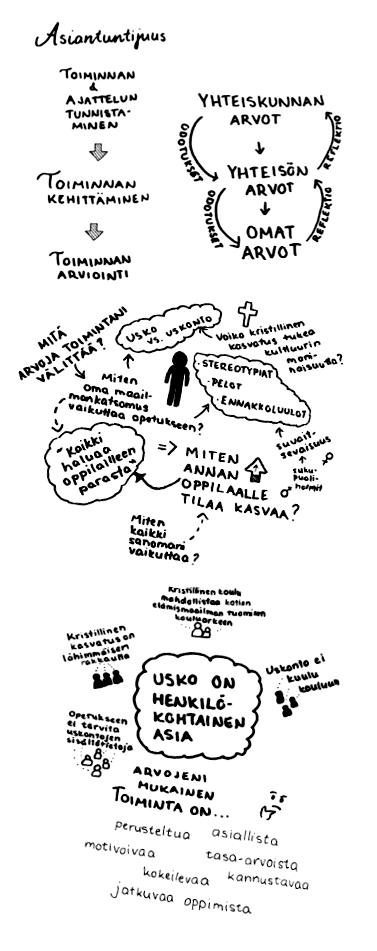 Asiantuntijuus
TOIMINNAN
&
AJATTELUN
TUNNISTA-
MINEN
TOIMINNAN
KEHITTÄMINEN
TOIMINNAN
ARVIOINTI
YHTEISKUNNAN
ARVOT
ODOTUKSET
REFLEKTIO
YHTEISÖN
ARVOT
ODOTUKSET
REFLEKTIO
OMAT
ARVOT
MITÄ
ARVOJA TOIMINTANI
VÄLITTÄÄ?
USKO
VS. USKONTO
Voiko kristillinen
kasvatus tukea
kulttuurin
moni-
naisuutta?
Miten
oma maail-
mankatsomus
vaikuttaa opetukseen?
• STEREOTYPIAT
• PELOT
• ENNAKKOLUULOT
suvait-
sevaisuus
suku-
puoli-
normit
"Kaikki
haluaa
oppilailleen
parasta"
=> MITEN
ANNAN
OPPILAALLE
TILAA KASVAA?
Miten
kaikki
sanomani
vaikuttaa?
Kristillinen koulu
mahdollistaa kotien
elämismaailman tuomisen
kouluarkeen
Kristillinen
kasvatus on
lähimmäisen
rakkautta
Uskonto ei
kuulu
kouluun
USKO ON
HENKILÖ-
KOHTAINEN
ASIA
Opetukseen
ei tarvita
uskontojen
sisältötietoja
ARVOJENI
MUKAINEN
TOIMINTA ON...
perusteltua asiallista
motivoivaa tasa-arvoista
kokeilevaa kannustavaa
jatkuvaa oppimista